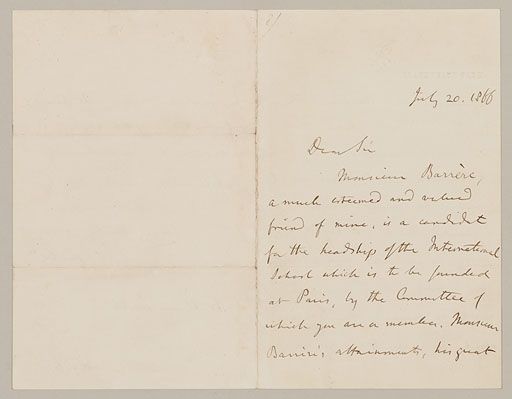 July 20. 1866
Dear Sir
Monsieur Barrère,
a much esteemed and valued
friend of mine, is a candidate
for the headship of the International
School which is to be founded
at Paris, by the Committee of
which you are a member. Monsieur
Barrère's attainments, his great